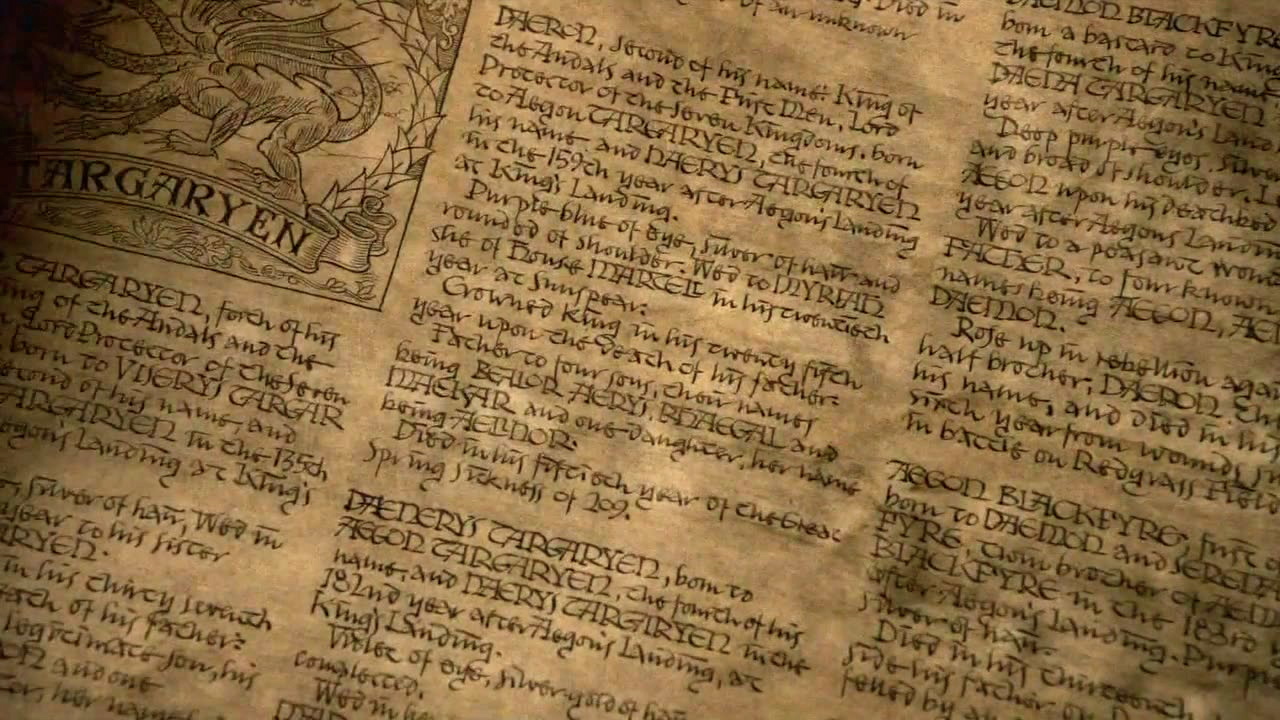 TARGARYEN
TARGARYEN, forth of his
of the Andals and the
Lord Protector of the Seven
born to VISERYS TARGAR
second of his name, and
in the 135th
Aegon's Landing at King's
silver of hair, Wed in
year to his sister
in his thirty seventh
death of his father:
legitimate son, his
and one
her name
Died in
of an unknown
DAERON, second of his name: King of
the Andals and the First Men, Lord
Protector of the Seven Kingdoms. born
to Aegon TARGARYEN, the fourth of
his name and NAERYS TARGARYEN
in the 159th year after Aegon's Landing
at King's Landing.
Purple blue of eye, silver of hair and
rounded of shoulder. Wed to MYRIAH
she of House MARTELL in his twentieth
year at Sunspear.
Crowned King in his twenty fifth
year upon the death of his father:
Father to four sons, their names
being BEALOR, AERYS, RHAEGAL and
MAEKAR and one daughter, her name
being AELINOR:
Died in his fiftieth year of the Great
Spring Sickness of 209.
DAENERYS TARGARYEN, born to
AEGON TARGARYEN, the fourth of his
name, and NAERYS TARGARYEN in the
182nd year after Aegon's Landing, at
King's Landing.
Violet of eye, silver gold of hair
complected.
Wed in her
DAEMON BLACKFYRE
born a bastard to King
the fourth of his name
DAENA TARGARYEN
year after Aegon's Land
Deep purple eyes, silver
and broad of shoulder.
AEGON upon his deathbed
year after Aegons Landing
Wed to a peasant woman
FATHER, to four known
names being AEGON,
DAEMON.
Rose up in rebellion again
half brother, DAERON.
his name, and died in his
sixth year from wounds
in battle on Redgrass Field
AEGON BLACKFYRE, first
born to DAEMON and SERENA
FYRE, twin brother of
BLACKFYRE in the 183rd
after Aegon's Landing. Purple
silver of hair.
Died in his thirteenth
side his father on
felled by